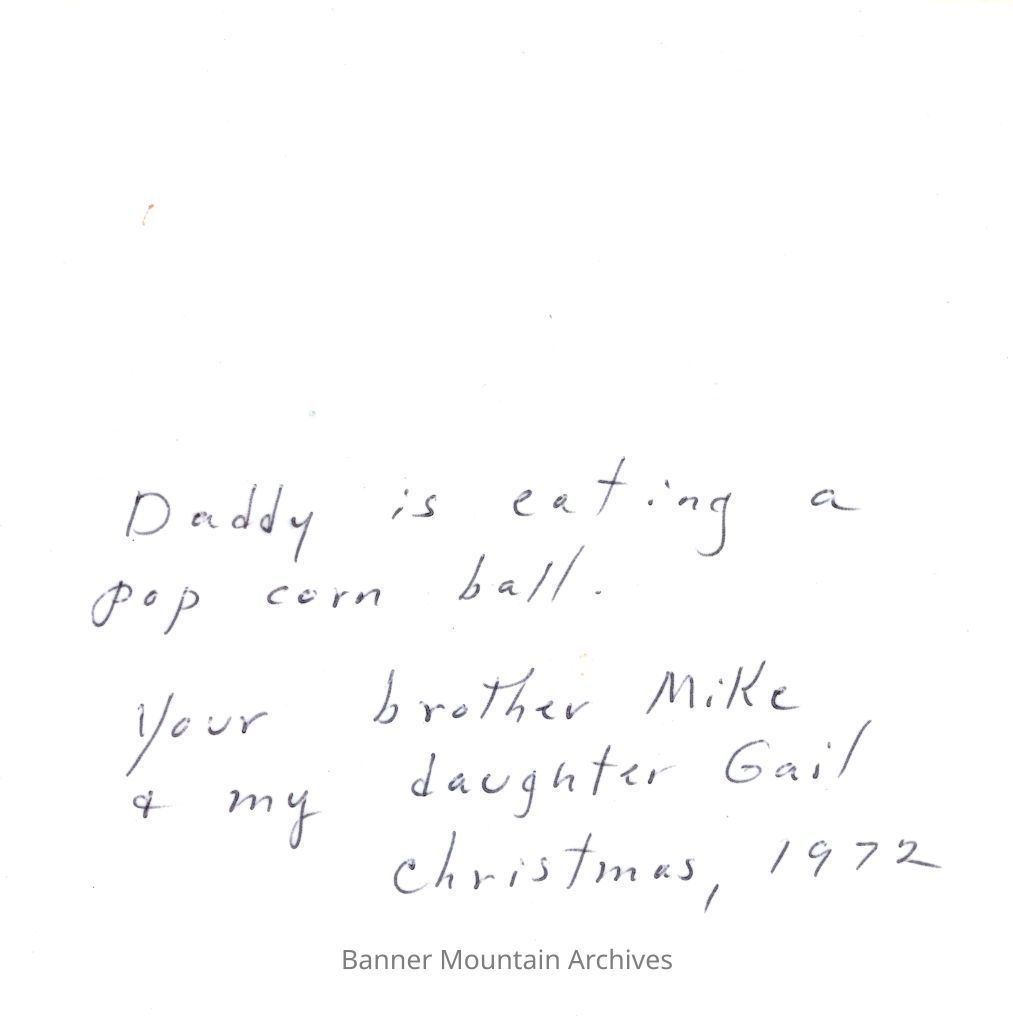 Daddy is eating a
pop corn ball.
Your brother Mike
& my daughter Gail
Christmas, 1972
Banner Mountain Archives